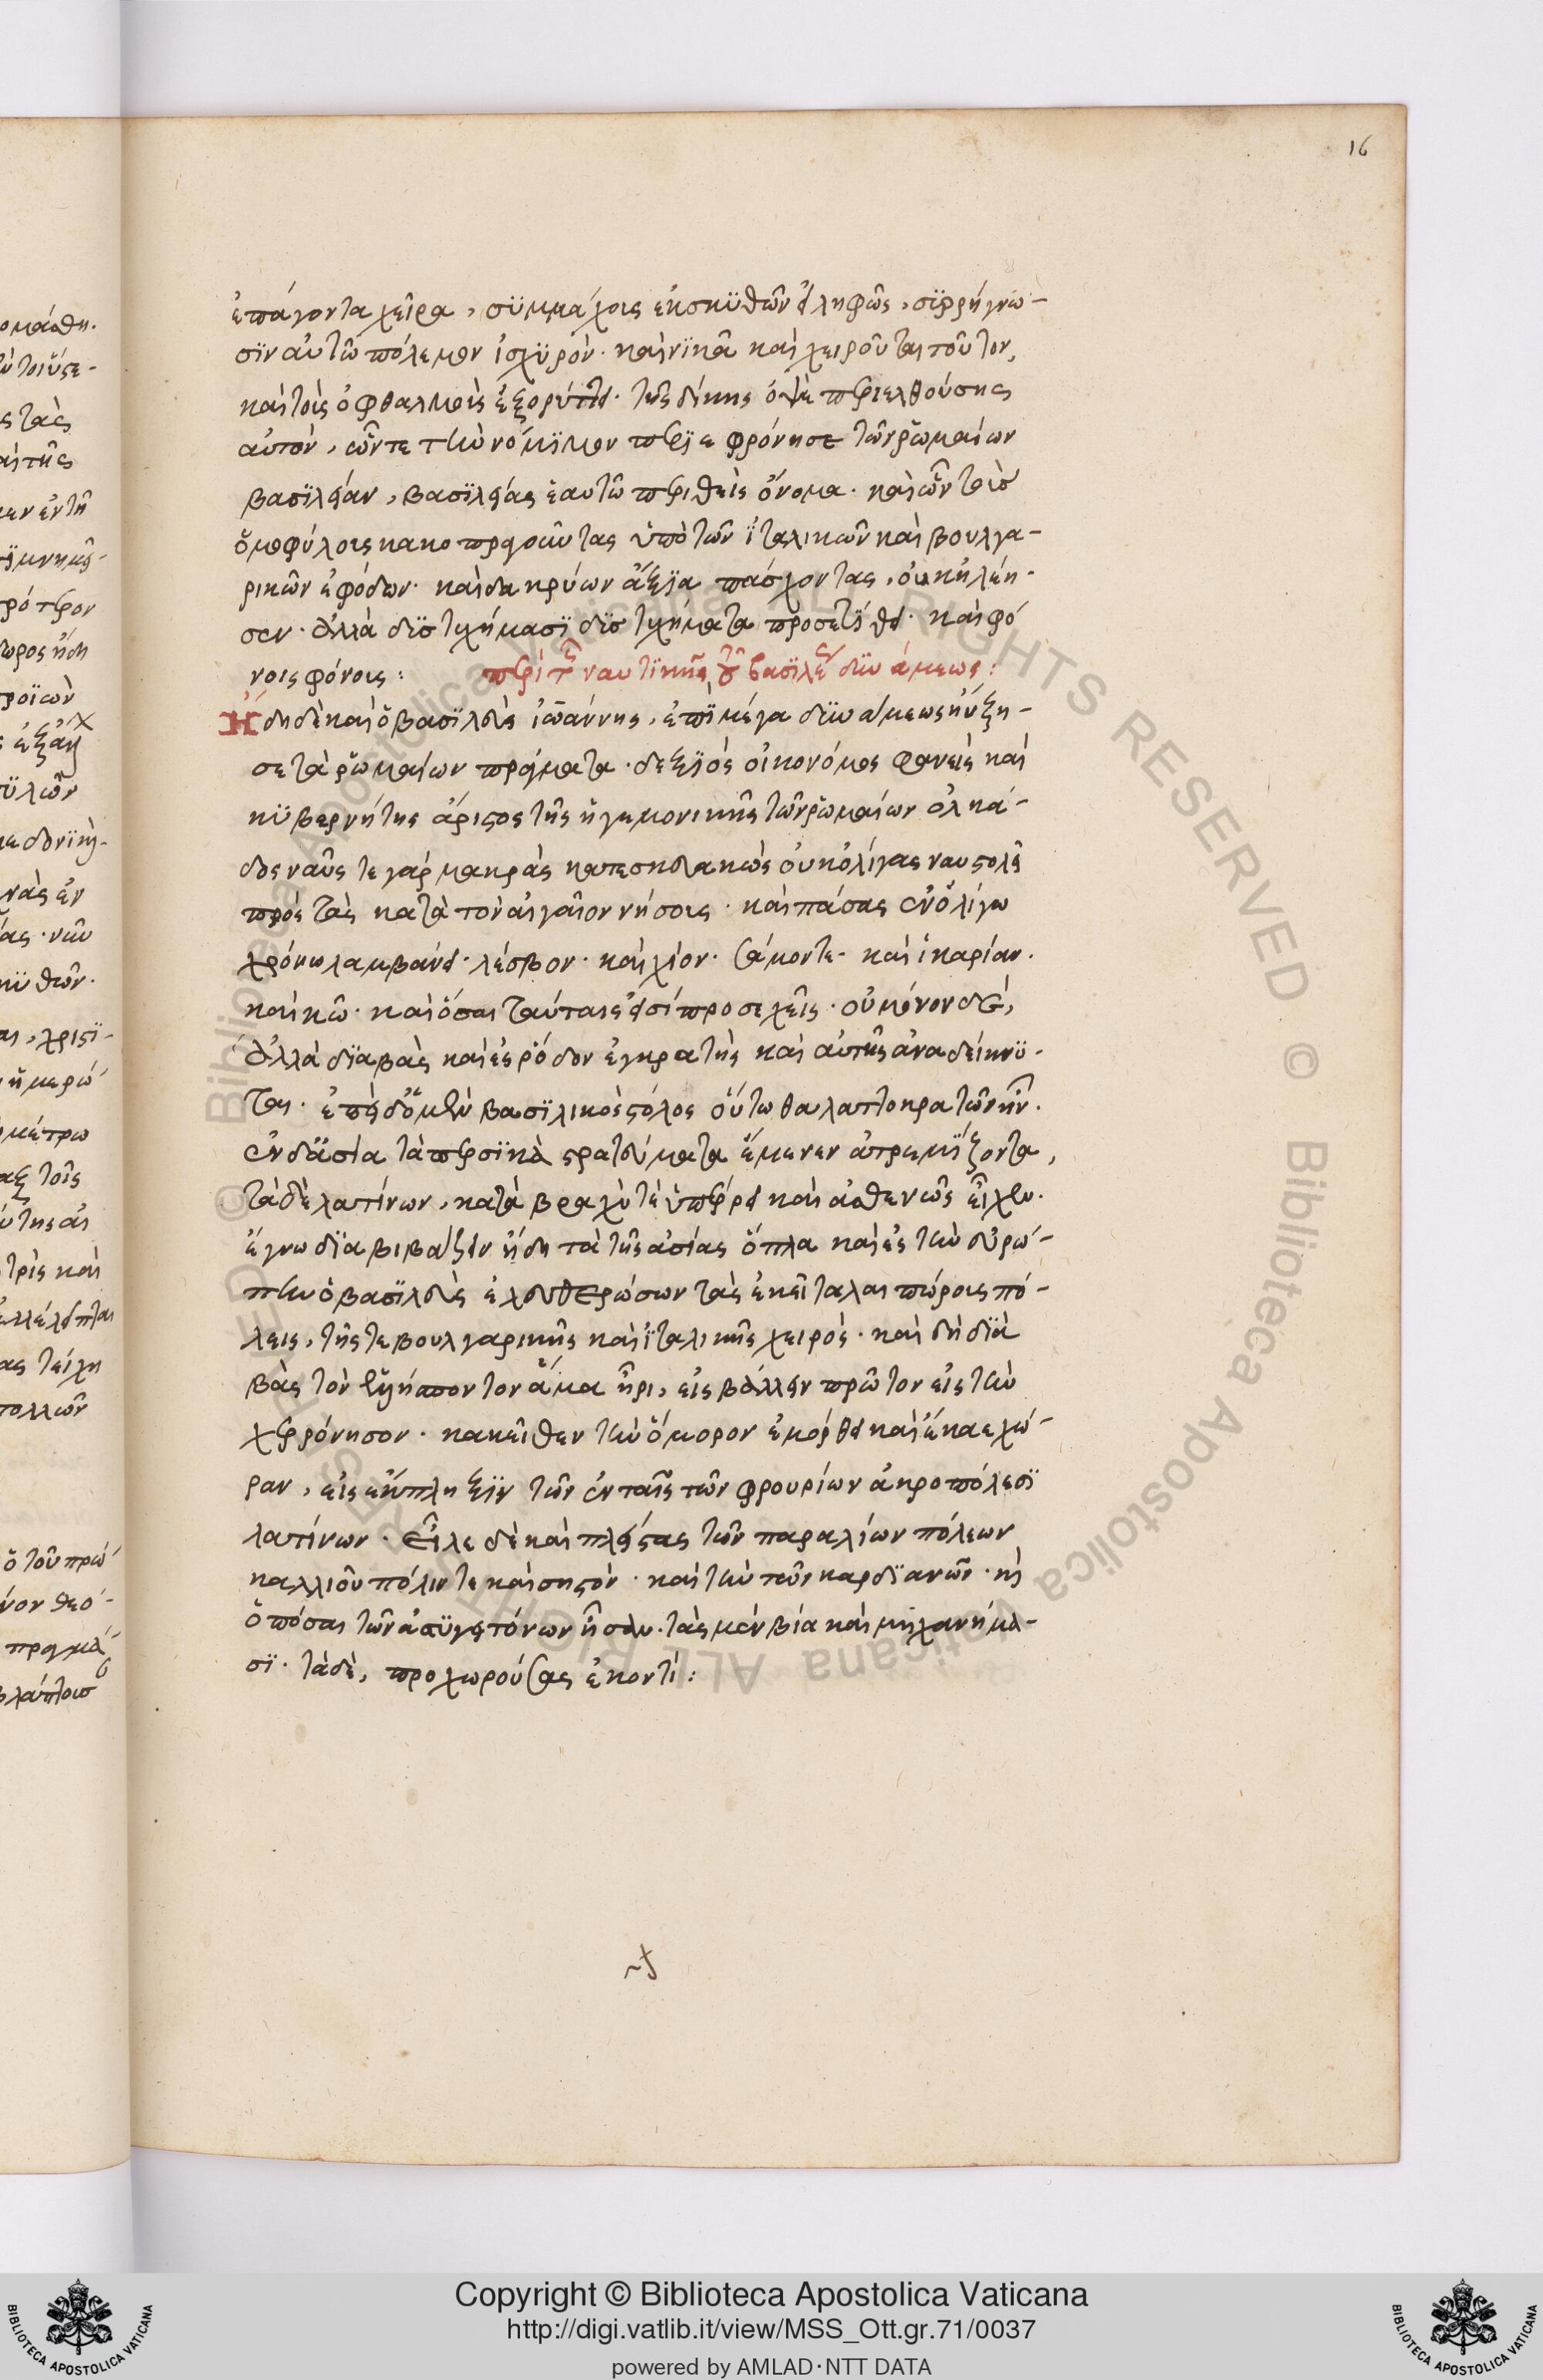 ἐπάγοντα χεῖρα, συμμάχοις ἐκ σκυθῶν εἰληφὼς, συρρήγνυ-
σιν αὐτῶ πόλεμον ἰσχυρόν· καὶ νικᾶ καὶ χειροῦται τοῦτον,
καὶ τοὺς ὀφθαλμοὺς ἐξορύττει· τῆς δίκης ὀψὲ περιελθούσης
αὐτὸν, ὧν τε τὴν νόμιμον περιεφρόνησε τῶν ῥωμαίων
βασιλείαν, βασιλείας ἑαυτῶ περιθεὶς ὄνομα· καὶ ὧν τοὺς
ὁμοφύλους κακοπραγοῦντας ὑπὸ τῶν ἰταλικῶν καὶ βουλγα-
ρικῶν ἐφόδων· καὶ δακρύων ἄξια πάσχοντας, οὐκ ἠλέη-
σεν· ἀλλὰ δυστυχήμασι δυστυχήματα προσετίθει· καὶ φό
νοις φόνους: περὶ τῆς ναυτικῆς τοῦ βασιλέως δυνάμεως:
Ἤδη δὲ καὶ ὁ βασιλεὺς ἰωάννης, ἐπὶ μέγα δυνάμεως ηὔξη-
σε τὰ ῥωμαίων πράγματα· δεξιὸς οἰκονόμος φανεὶς καὶ
κυβερνήτης ἄριστος τῆς ἡγεμονικῆς τῶν ῥωμαίων ὁλκά-
δος ναῦς τε γὰρ μακρὰς κατεσκευακὼς οὐκ ὀλίγας ναυστολεῖ
πρὸς τὰς κατὰ τὸν αἰγαῖον νήσους· καὶ πάσας ἐν ὀλίγω
χρόνω λαμβάνει· λέσβον· καὶ χίον· σάμον τε· καὶ ἰκαρίαν·
καὶ κῶ· καὶ ὅσαι ταύταις εἰσὶ προσεχεῖς· οὐ μόνον δέ,
ἀλλὰ διαβὰς καὶ ἐς ῥόδον ἐγκρατὴς καὶ αὐτῆς ἀναδείκνυ-
ται· ἐπεὶ δ' ὁ μὲν βασιλικὸς στόλος οὕτω θαλαττοκρατῶν ἦν·
ἐν δ' ἀσία τὰ περσικὰ στρατεύματα ἔμενεν ἀτρεμίζοντα,
τὰ δὲ λατίνων, κατὰ βραχύ τε ὑπέρρει καὶ ἀσθενῶς εἶχεν·
ἔγνω διαβιβάζειν ἤδη τὰ τῆς ἀσίας ὅπλα καὶ ἐς τὴν εὐρώ-
πην ὁ βασιλεὺς ἐλευθερώσων τὰς ἐκεῖ ταλαιπώρους πό-
λεις, τῆς τε βουλγαρικῆς καὶ ἰταλικῆς χειρός· καὶ δὴ δια
βὰς τὸν ἑλλήσποντον ἅμα ἦρι, εἰσβάλλει πρῶτον εἰς τὴν
χερρόνησον· κἀκεῖθεν τὴν ὅμορον ἐπόρθει καὶ ἔκαε χώ-
ραν, εἰς ἔκπληξιν τῶν ἐν ταῖς τῶν φρουρίων ἀκροπόλεσι
λατίνων· εἷλε δὲ καὶ πλείστας τῶν παραλίων πόλεων
καλλιούπολίν τε καὶ σηστόν· καὶ τὴν τῶν καρδιανῶν· καὶ
ὁπόσαι τῶν ἀστυγειτόνων ἦσαν· τὰς μὲν βία καὶ μηχανήμα-
σι· τὰς δὲ, προχωρούσας ἑκοντί:
16
Copyright © Biblioteca Apostolica Vaticana
http://digi.vatlib.it/view/MSS_Ott.gr.71/0037
powered by AMLAD·NTT DATA
BIBLIOTECA APOSTOLICA VATICANA
BIBLIOTECA APOSTOLICA VATICANA